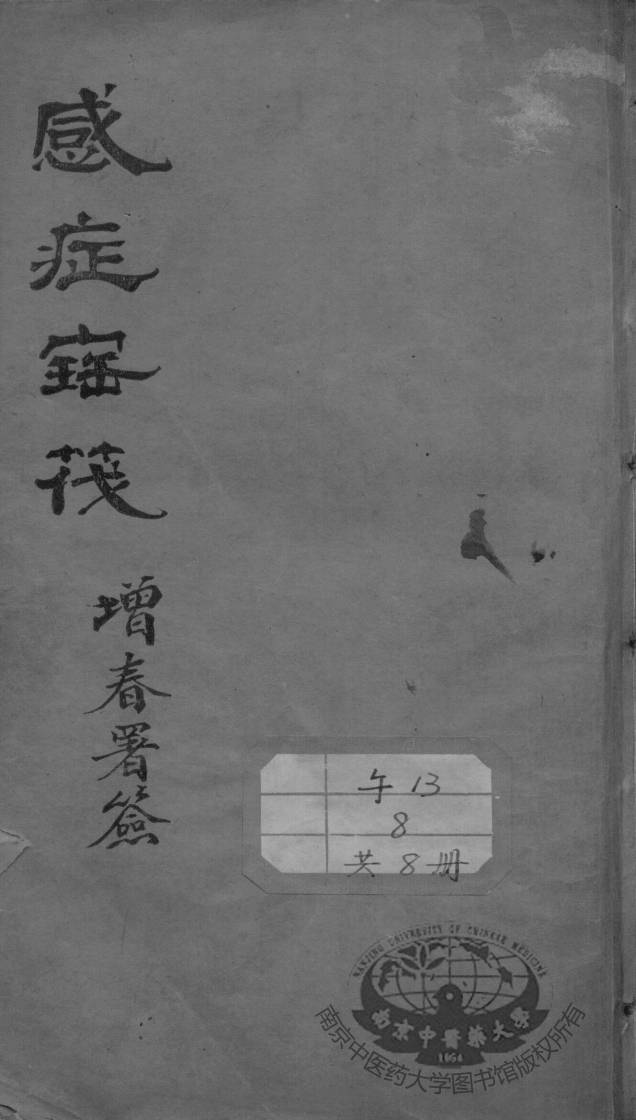 感症寚筏
增春署簽
午 13
8
共 8 册
NANJING UNIVERSITY OF CHINESE MEDICINE
南京中醫藥大學
1954
南京中医药大学图书馆版权所有